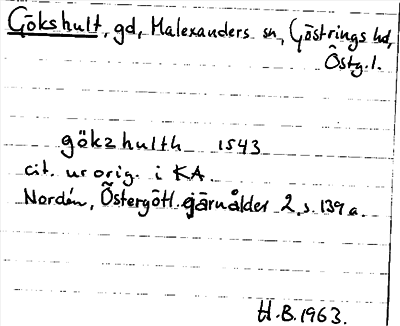 Gökshult, gd, Malexanders sn, Göstrings hd,
Östg. l.
gökzhulth 1543
cit. ur orig. i KA.
Nordén, Östergötl. järnålder 2, s. 139 a.
H.B. 1963.